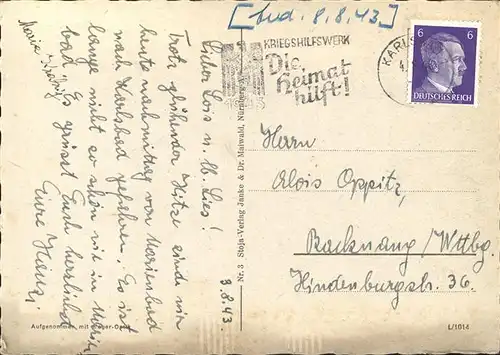 [And. 8.8.43]
KRIEGSHILFSWERK
Die
Heimat
hilft!
6 6
DEUTSCHES REICH
Lieber Lois u. lb. Lies!
Trotz glühender Hitze sind wir
heute nachmittag von Marienbad
nach Karlsbad gefahren. Es ist
lange nicht so schön wie in Marien
bad. Es grüsst Euch herzlichst
Eure
8.8.43.
Nr. 3 Stoja-Verlag Janke & Dr. Maiwald, Nürnberg
Herrn
Alois Oppitz,
Backnang/Wttbg.
Hindenburgstr. 36.
Aufgenommen mit
L/1014